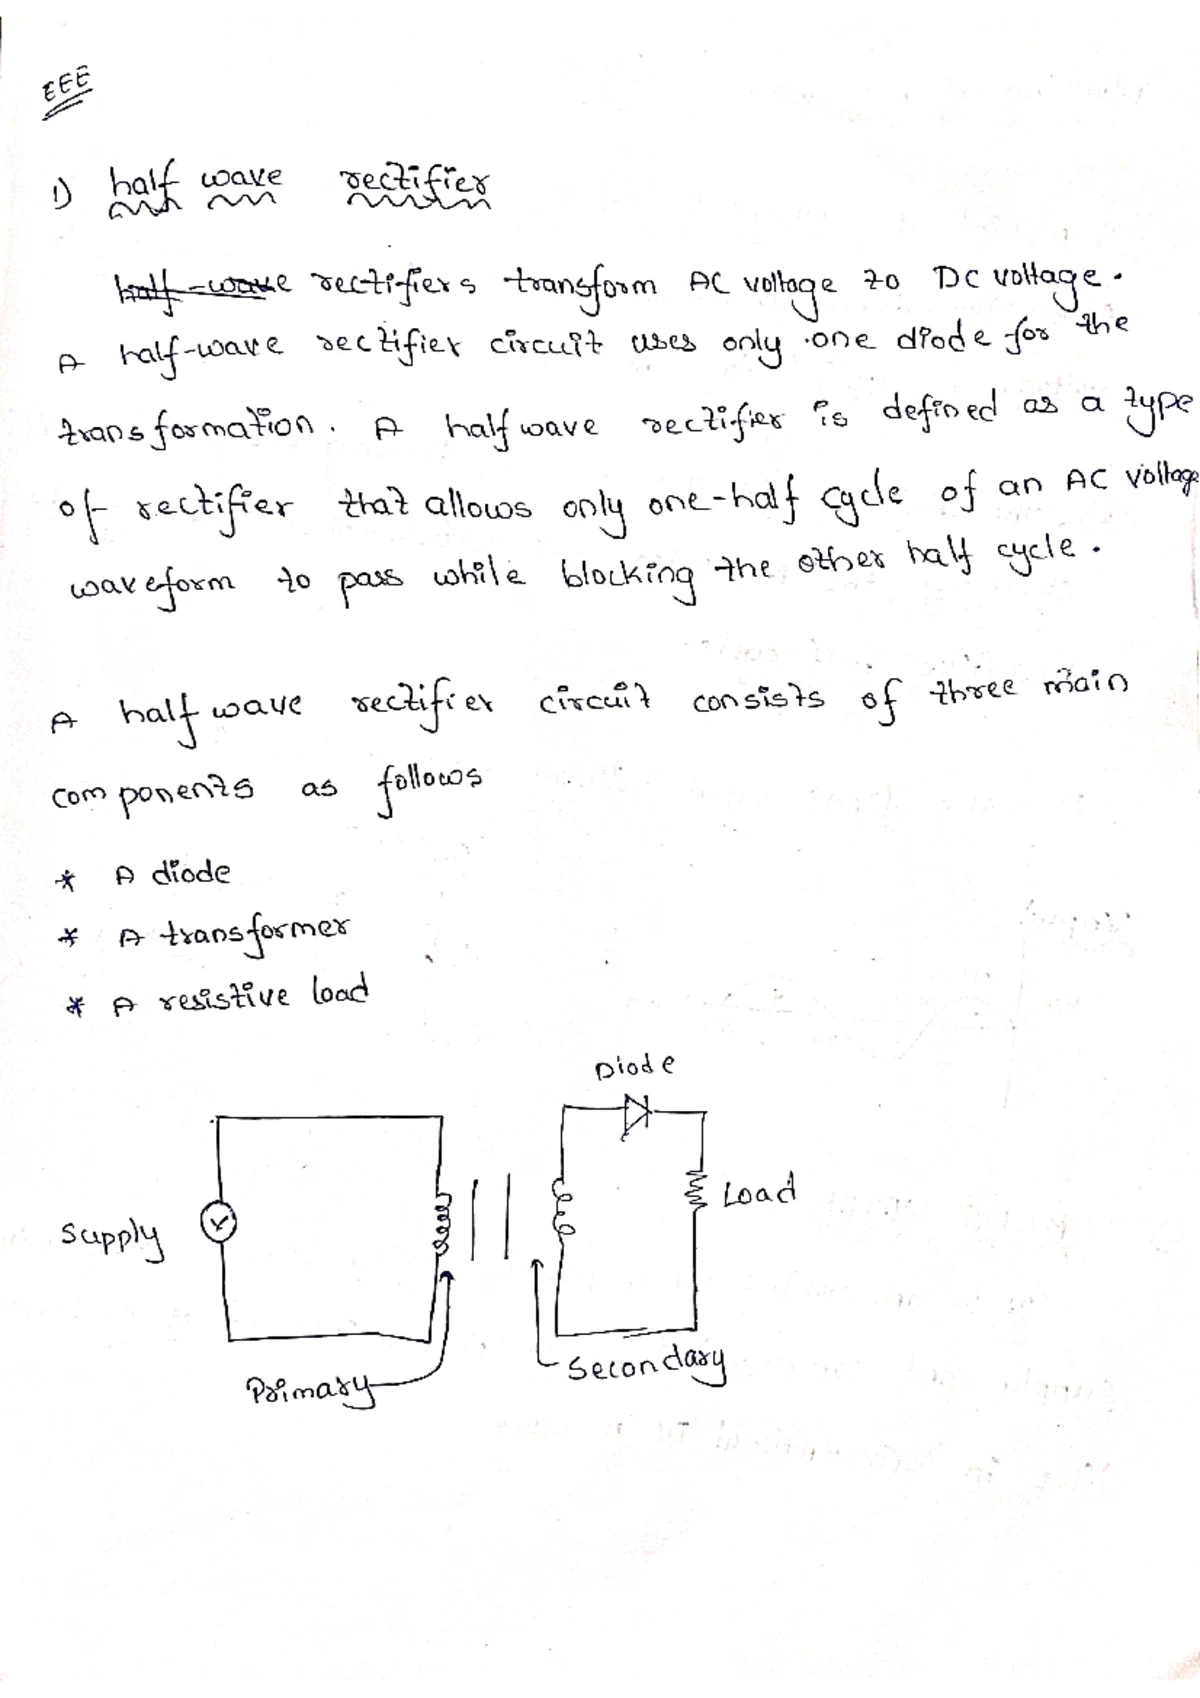 EEE
1) half wave rectifier
half-wave rectifiers transform AC voltage to DC voltage.
A half-wave rectifier circuit uses only one diode for the
transformation. A half wave rectifier is defined as a type
of rectifier that allows only one-half cycle of an AC voltage
waveform to pass while blocking the other half cycle.
A half wave rectifier circuit consists of three main
components as follows
* A diode
* A transformer
* A resistive load
Diode
Load
Supply
Secondary
Primary